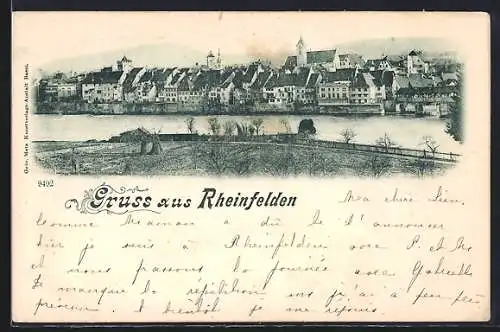 Gebr. Metz Kunstverlags-Anstalt Basel.
9492
Gruss aus Rheinfelden
Ma chère
Comme Maman a dû te l'annoncer
hier je suis à Rheinfelden avec P. et
et nous passons la journée avec Gabrielle
je manque de répétition j'ai à peu près
A bientôt je me